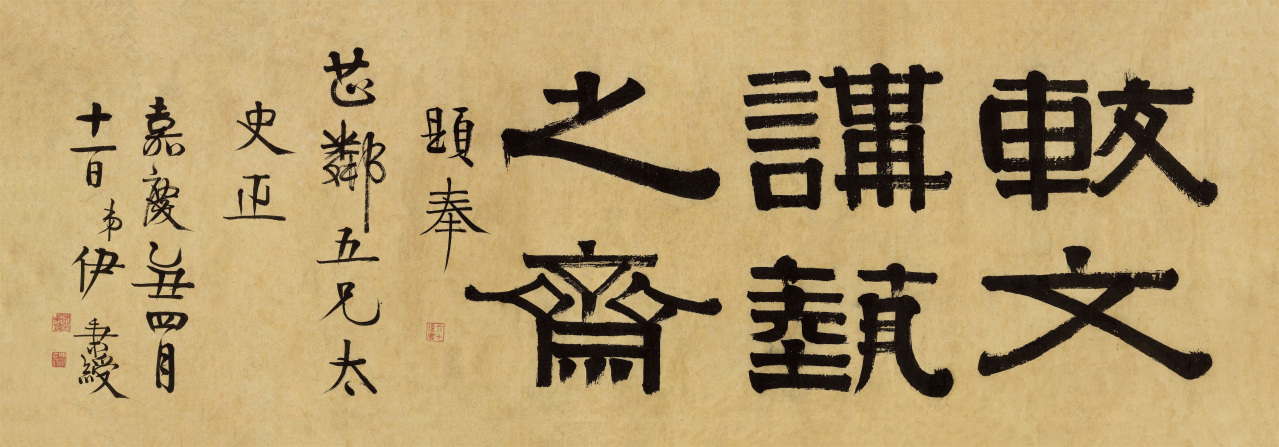 較文
講藝
之齋
題奉
芷鄰五兄太
史正
嘉慶乙丑四月
十一日弟伊
秉綬